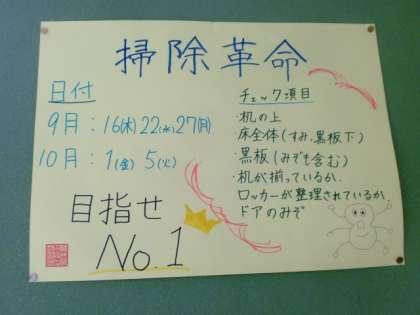 掃除革命
日付
9月:16(木)22(水)27(月)
10月:1(金)5(火)
目指せ
No.1
チェック項目
・机の上
・床全体(すみ、黒板下)
・黒板(みぞも含む)
・机が揃っているか.
ロッカーが整理されているか.
ドアのみぞ